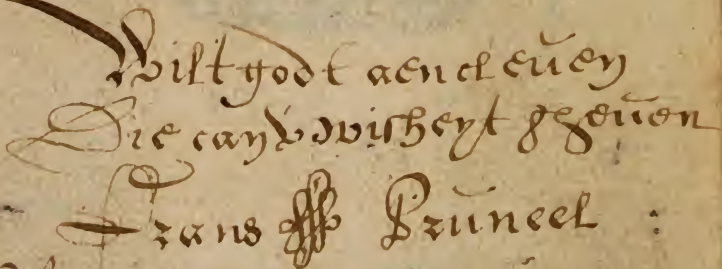 Wilt godt aencleven
Die can V wisheyt gheven
Frans Bruneel